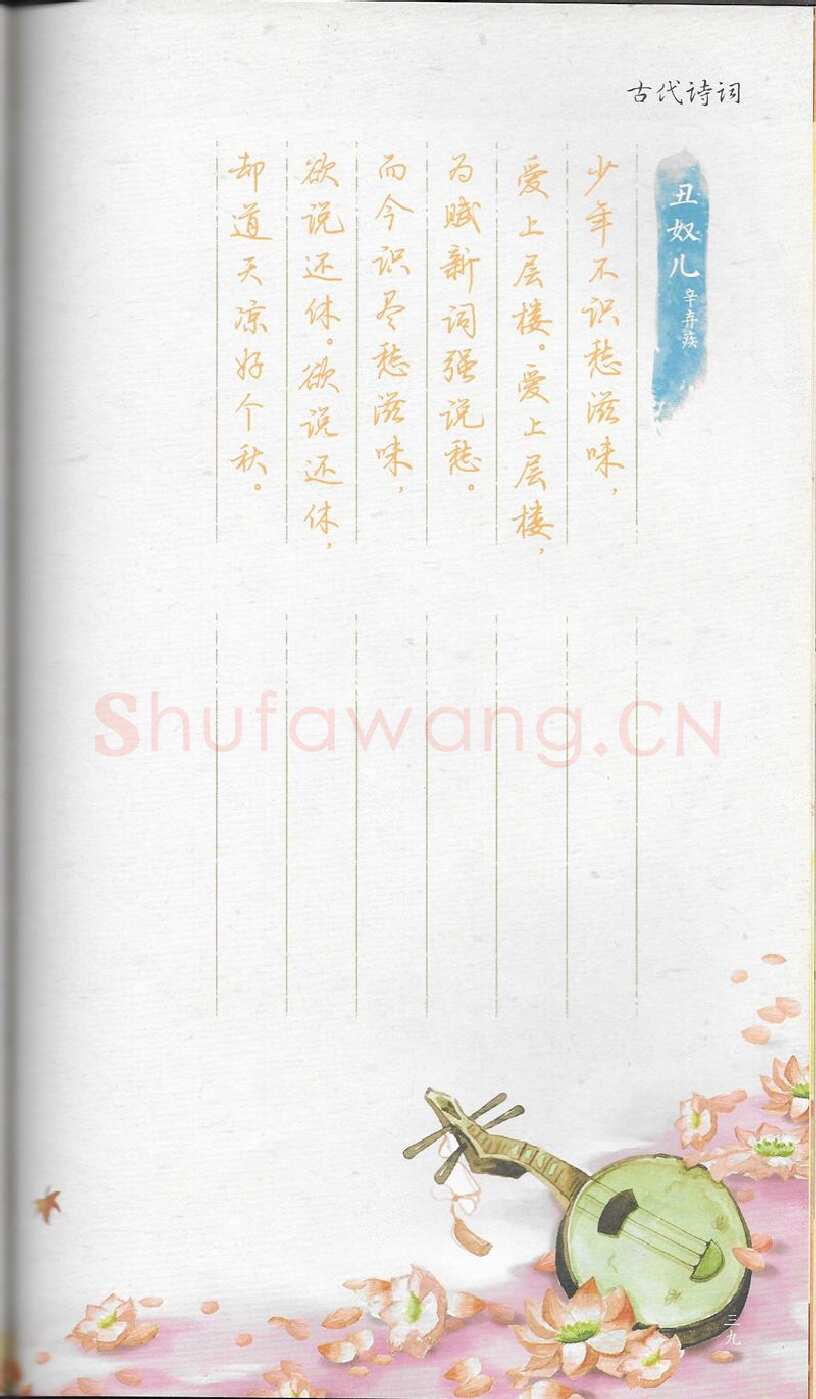 古代诗词
丑奴儿 辛弃疾
少年不识愁滋味，
爱上层楼。爱上层楼，
为赋新词强说愁。
而今识尽愁滋味，
欲说还休。欲说还休，
却道天凉好个秋。
Shufawang.CN
三九